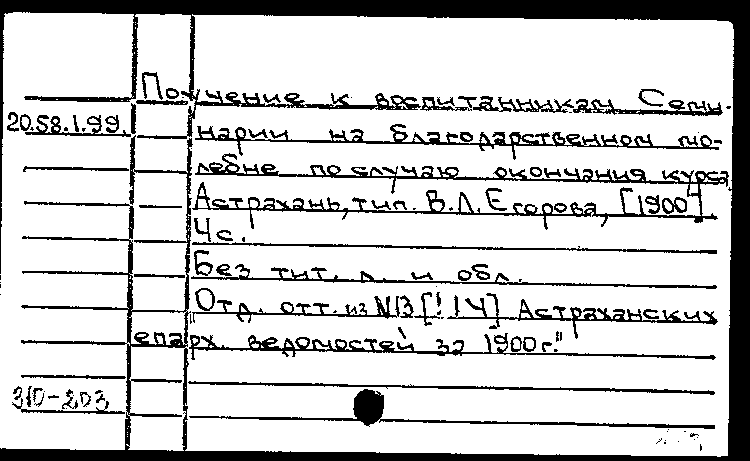 Поучение к воспитанникам Семи-
20.58.1.99.
нарии на благодарственном мо-
лебне по случаю окончания курса
Астрахань, тип. В.Л. Егорова, [1900].
4 с.
Без тит. л. и обл.
"Отд. отт. из N13 [! 14] Астраханских
епарх. ведомостей за 1900 г."
310-203